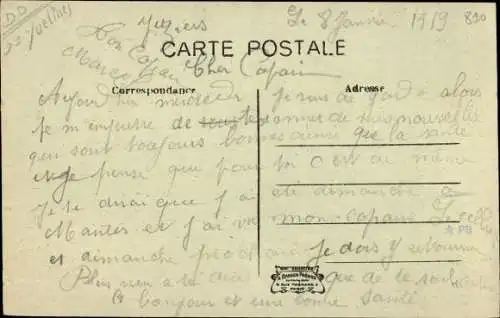 Juziers Le 8 Janvier 1919
Ton Copain
CARTE POSTALE
Marcel Cher Copain
Correspondance Adresse
Aujourd'hui mercredi je suis de garde alors
je m'empresse de te donner de mes nouvelles
qui sont toujours bonnes que la santé
je pense que pour toi c'est de même
Je te dirai que j'ai été dimanche a
Mantes et j'ai vu mon copain
et dimanche prochain Je dois y retourner
Plus rien a te dire que de te souhaiter
bonjour et une bonne santé